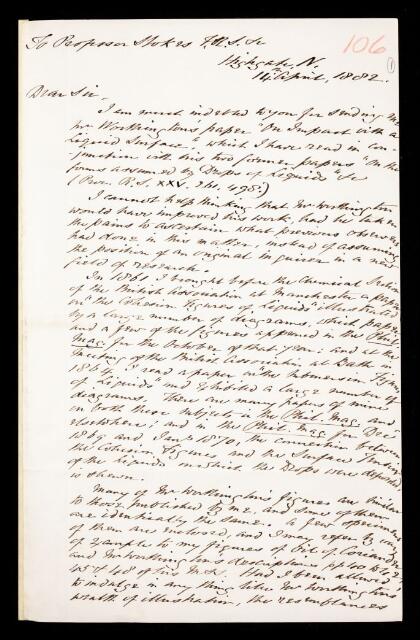 To Professor Stokes F.R.S. &c
106
1
Highgate, N.
14 April, 1882.
Dear Sir,
I am much indebted to you for sending me
Mr Worthington's paper "On Impact with a
Liquid Surface", which I have read in con-
junction with his two former papers "On the
forms assumed by Drops of Liquids" &c
(Proc. R.S. XXV. 261. 498.)
I cannot help thinking that Mr Worthington
would have improved his work, had he taken
the pains to ascertain what previous observers
had done in this matter, instead of assuming
the position of an original inquirer in a new
field of research.
In 1861 I brought before the Chemical Section
of the British Association at Manchester a paper
on "the Cohesion Figures of Liquids" illustrated
by a large number of diagrams, which paper
and a few of the figures appeared in the Phil.
Mag. for the October of that year: and at the
Meeting of the British Association at Bath in
1864 I read a paper on "the Submersion Figures
of Liquids" and exhibited a large number of
diagrams. There are many papers of mine
on both these subjects in the Phil. Mag. and
elsewhere; and in the Phil. Mag. for Dec
1869 and Jan 1870, the connexion between
the Cohesion figures and the Surface Tension
of the Liquids on which the Drops were deposited
is shewn.
Many of Mr Worthington's figures are similar
to those published by me, and some of them
are identically the same. A few specimens
of them are inclosed, and I may refer by way
of example to my figures of Oil of Coriander
and Mr Worthington's descriptions pp 40 to 42,
45 & 48 of his M.S. Had I been allowed
to indulge in any thing like Mr Worthington's
wealth of illustration, the resemblances